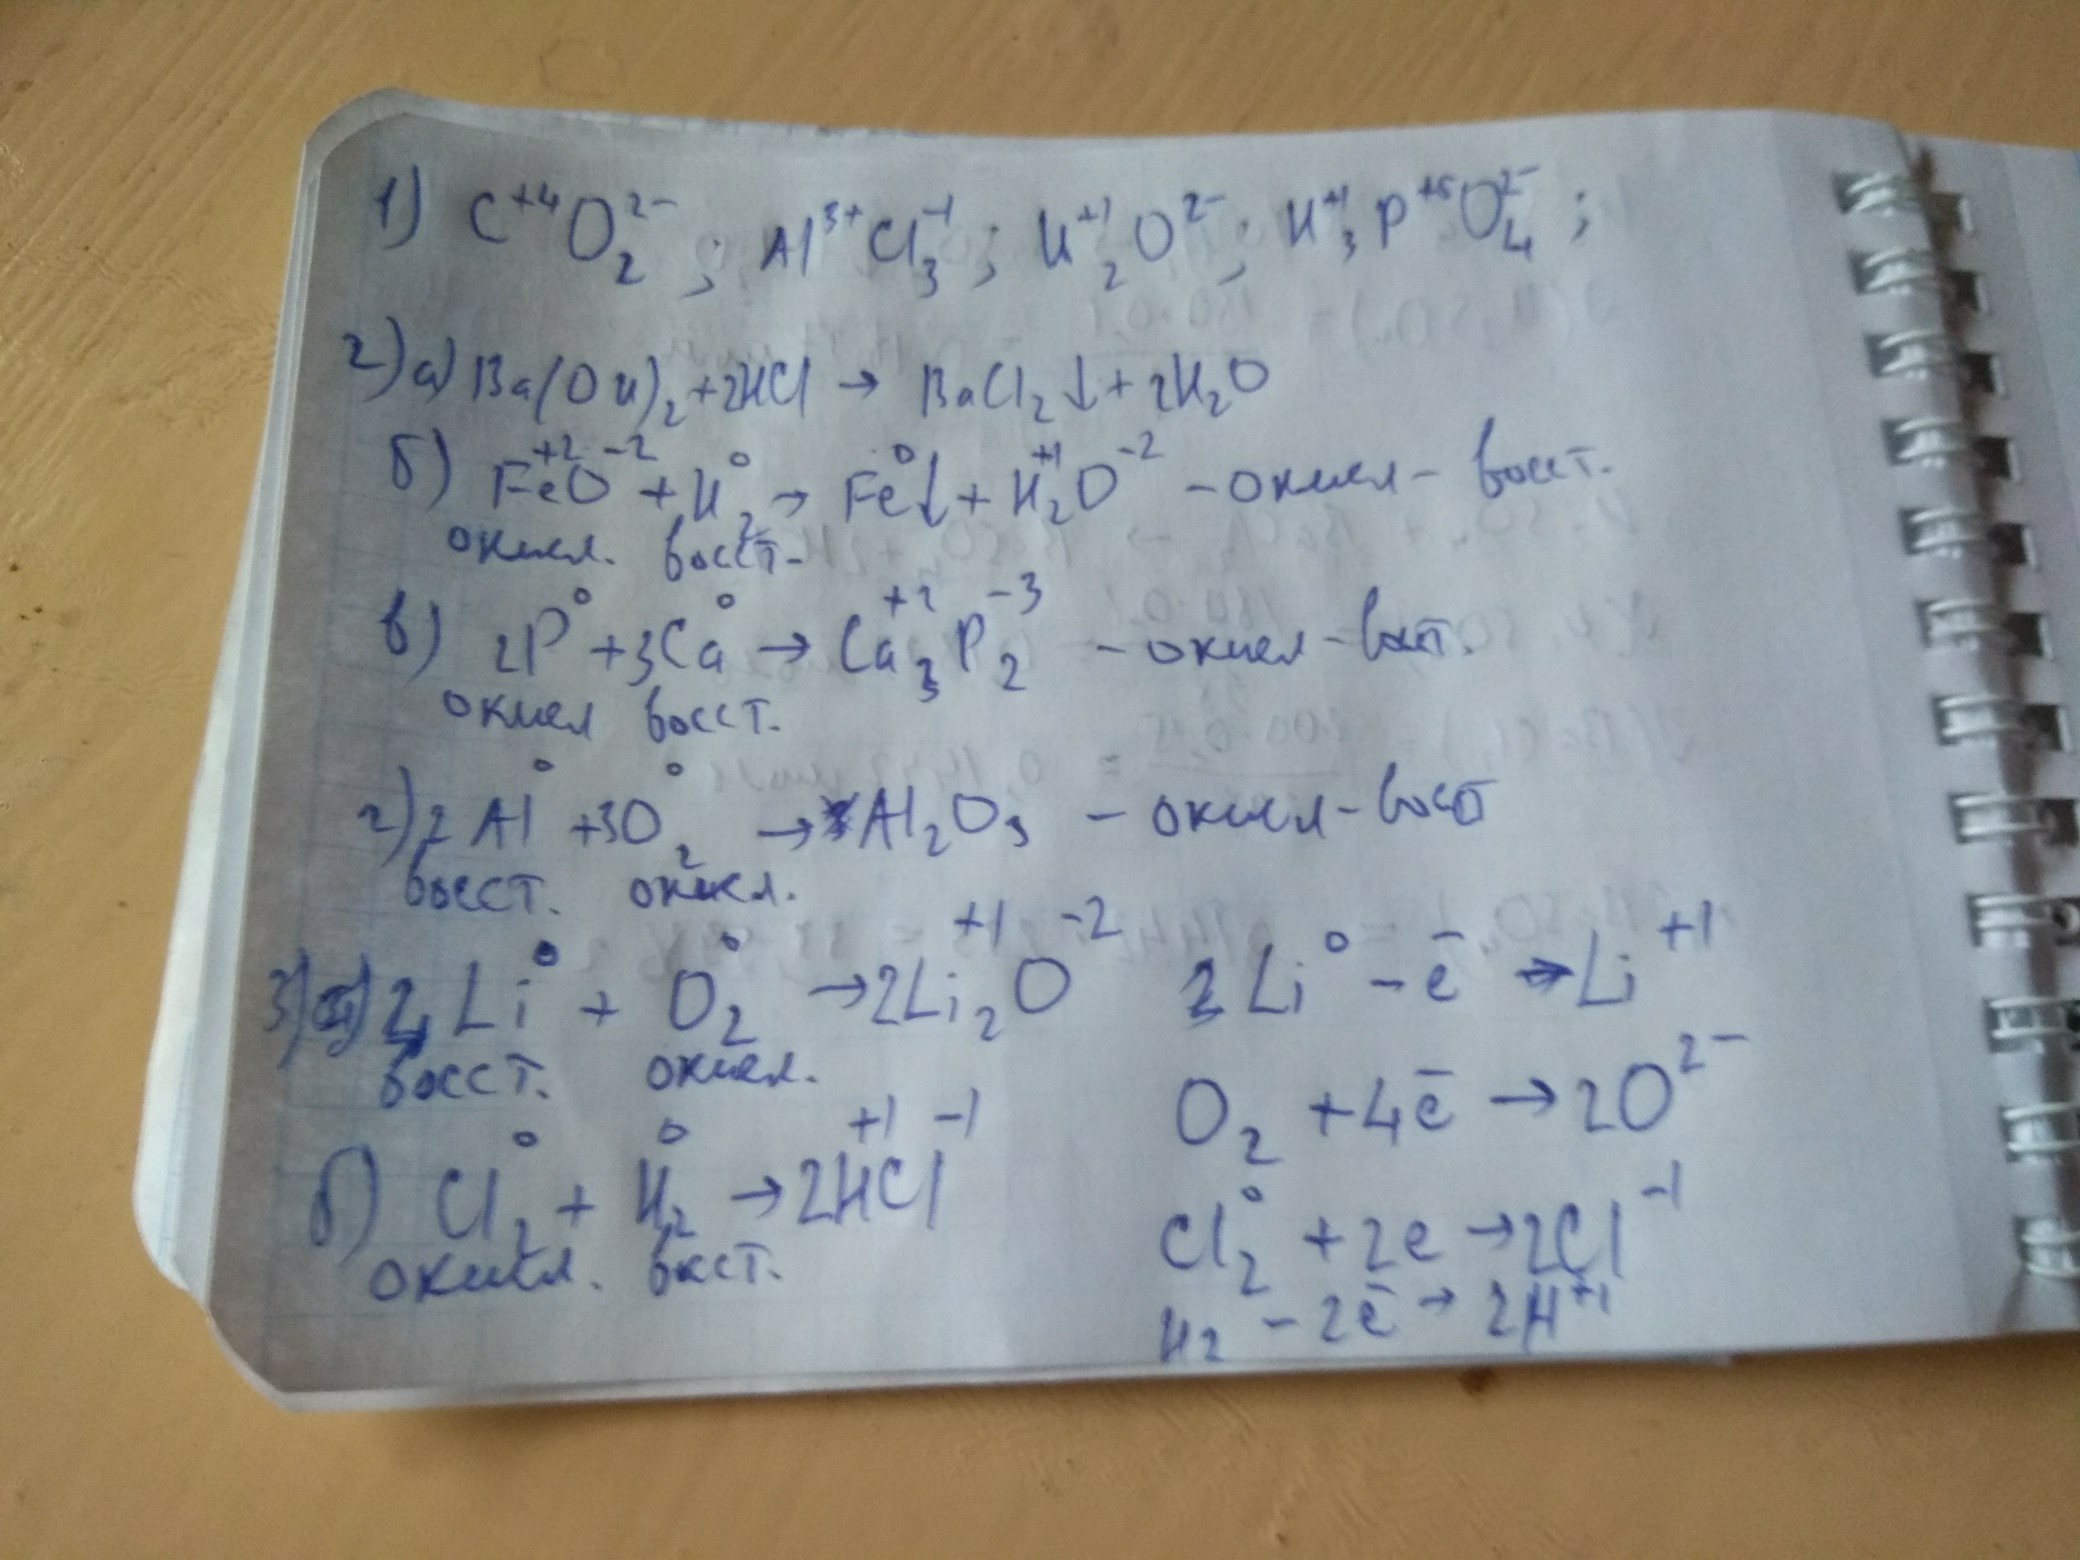 1) C⁺⁴O₂²⁻; Al³⁺Cl₃⁻¹; H₂⁺¹O²⁻; H₃⁺¹P⁺⁵O₄²⁻;
2) а) Ba(OH)₂ + 2HCl → BaCl₂↓ + 2H₂O
б) Fe⁺²O⁻² + H₂⁰ → Fe⁰↓ + H₂⁺¹O⁻² – окисл – восст.
окисл. восст.
в) 2P⁰ + 3Ca⁰ → Ca₃⁺²P₂⁻³ – окисл – восст.
окисл восст.
г) 2Al⁰ + 3O₂⁰ → Al₂O₃ – окисл – восст
восст. окисл.
3) а) 4Li⁰ + O₂⁰ → 2Li₂⁺¹O⁻² 2Li⁰ – e̅ → Li⁺¹
восст. окисл.
O₂ + 4e̅ → 2O²⁻
б) Cl₂⁰ + H₂⁰ → 2H⁺¹Cl⁻¹
окисл. восст.
Cl₂⁰ + 2e → 2Cl⁻¹
H₂ – 2e̅ → 2H⁺¹